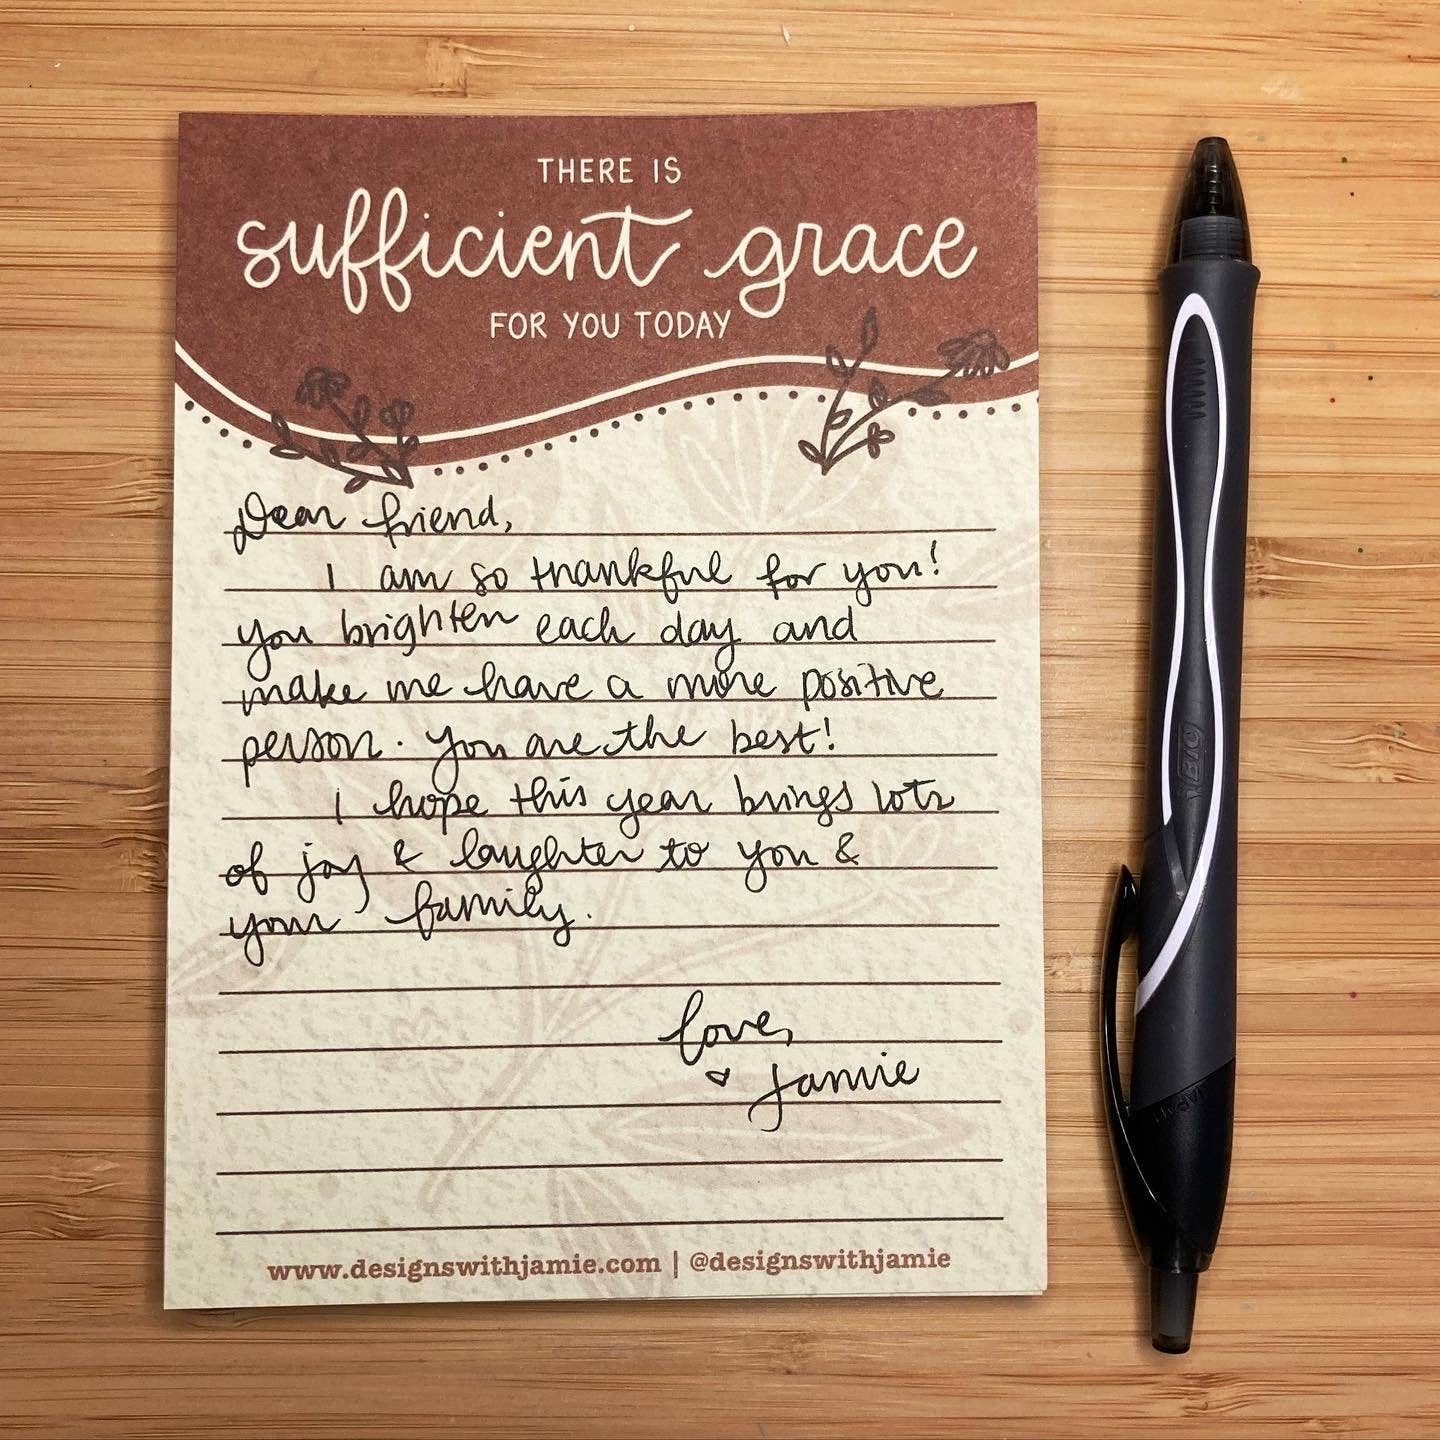 THERE IS
sufficient grace
FOR YOU TODAY
Dear friend,
I am so thankful for you!
you brighten each day and
make me have a more positive
person. You are the best!
I hope this year brings lots
of joy & laughter to you &
your family.
love,
Jamie
www.designswithjamie.com | @designswithjamie
BIC
JAPAN